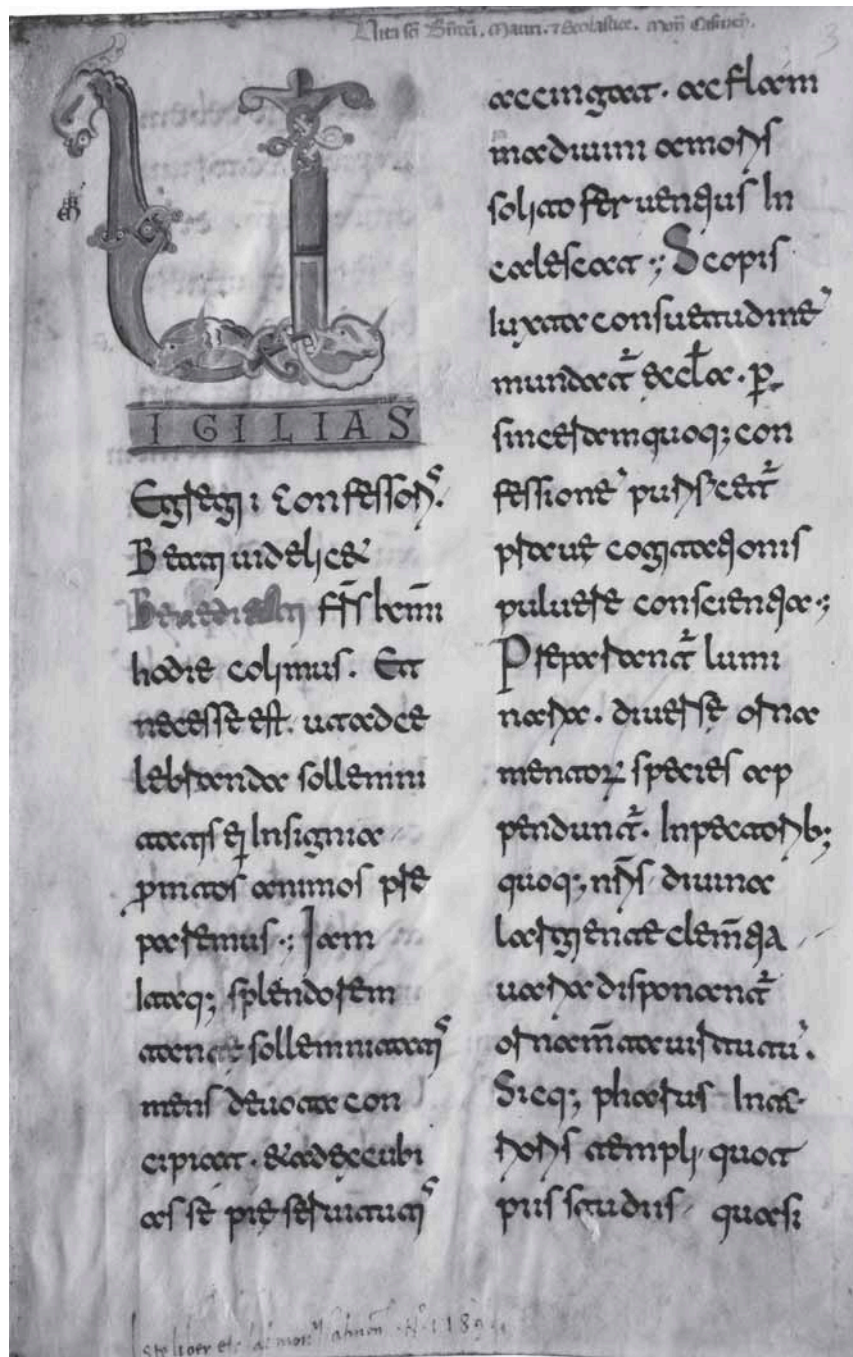 Vita sci Bndci. Mauri. & Scolastice. Mon Casineñ.
3
U
IGILIAS
Egregii confessoris
Beati uidelicet
Benedicti fr̄s kr̄mi
hodie colimus. Et
necesse est. ut ad ce
lebranda sollemni
tatis ei insignia
promtos animos pre
paremus; Iam
iamq; splendorem
tante sollemnitatis
mens deuota con
cipiat. & ad excubi
as se pie seruitutis
accingat. ac flam
ma diuini amoris
solito feruentius In
calescat; Scopis
iuxta consuetudine
mundat' eccla. p
quoq; con
fessione
praue cogitationis
puluere conscientia;
Preparant' lumi
naria. diuerse orna
mentorum species ap
pendunt'. In pectorib;
quoq; nr̄is diuina
largiente clem̄tia
uaria disponant'
ornam̄ta uirtutu.
Sicq; pharus Inte
rioris templi quot
piis studiis quasi
Iste liber est